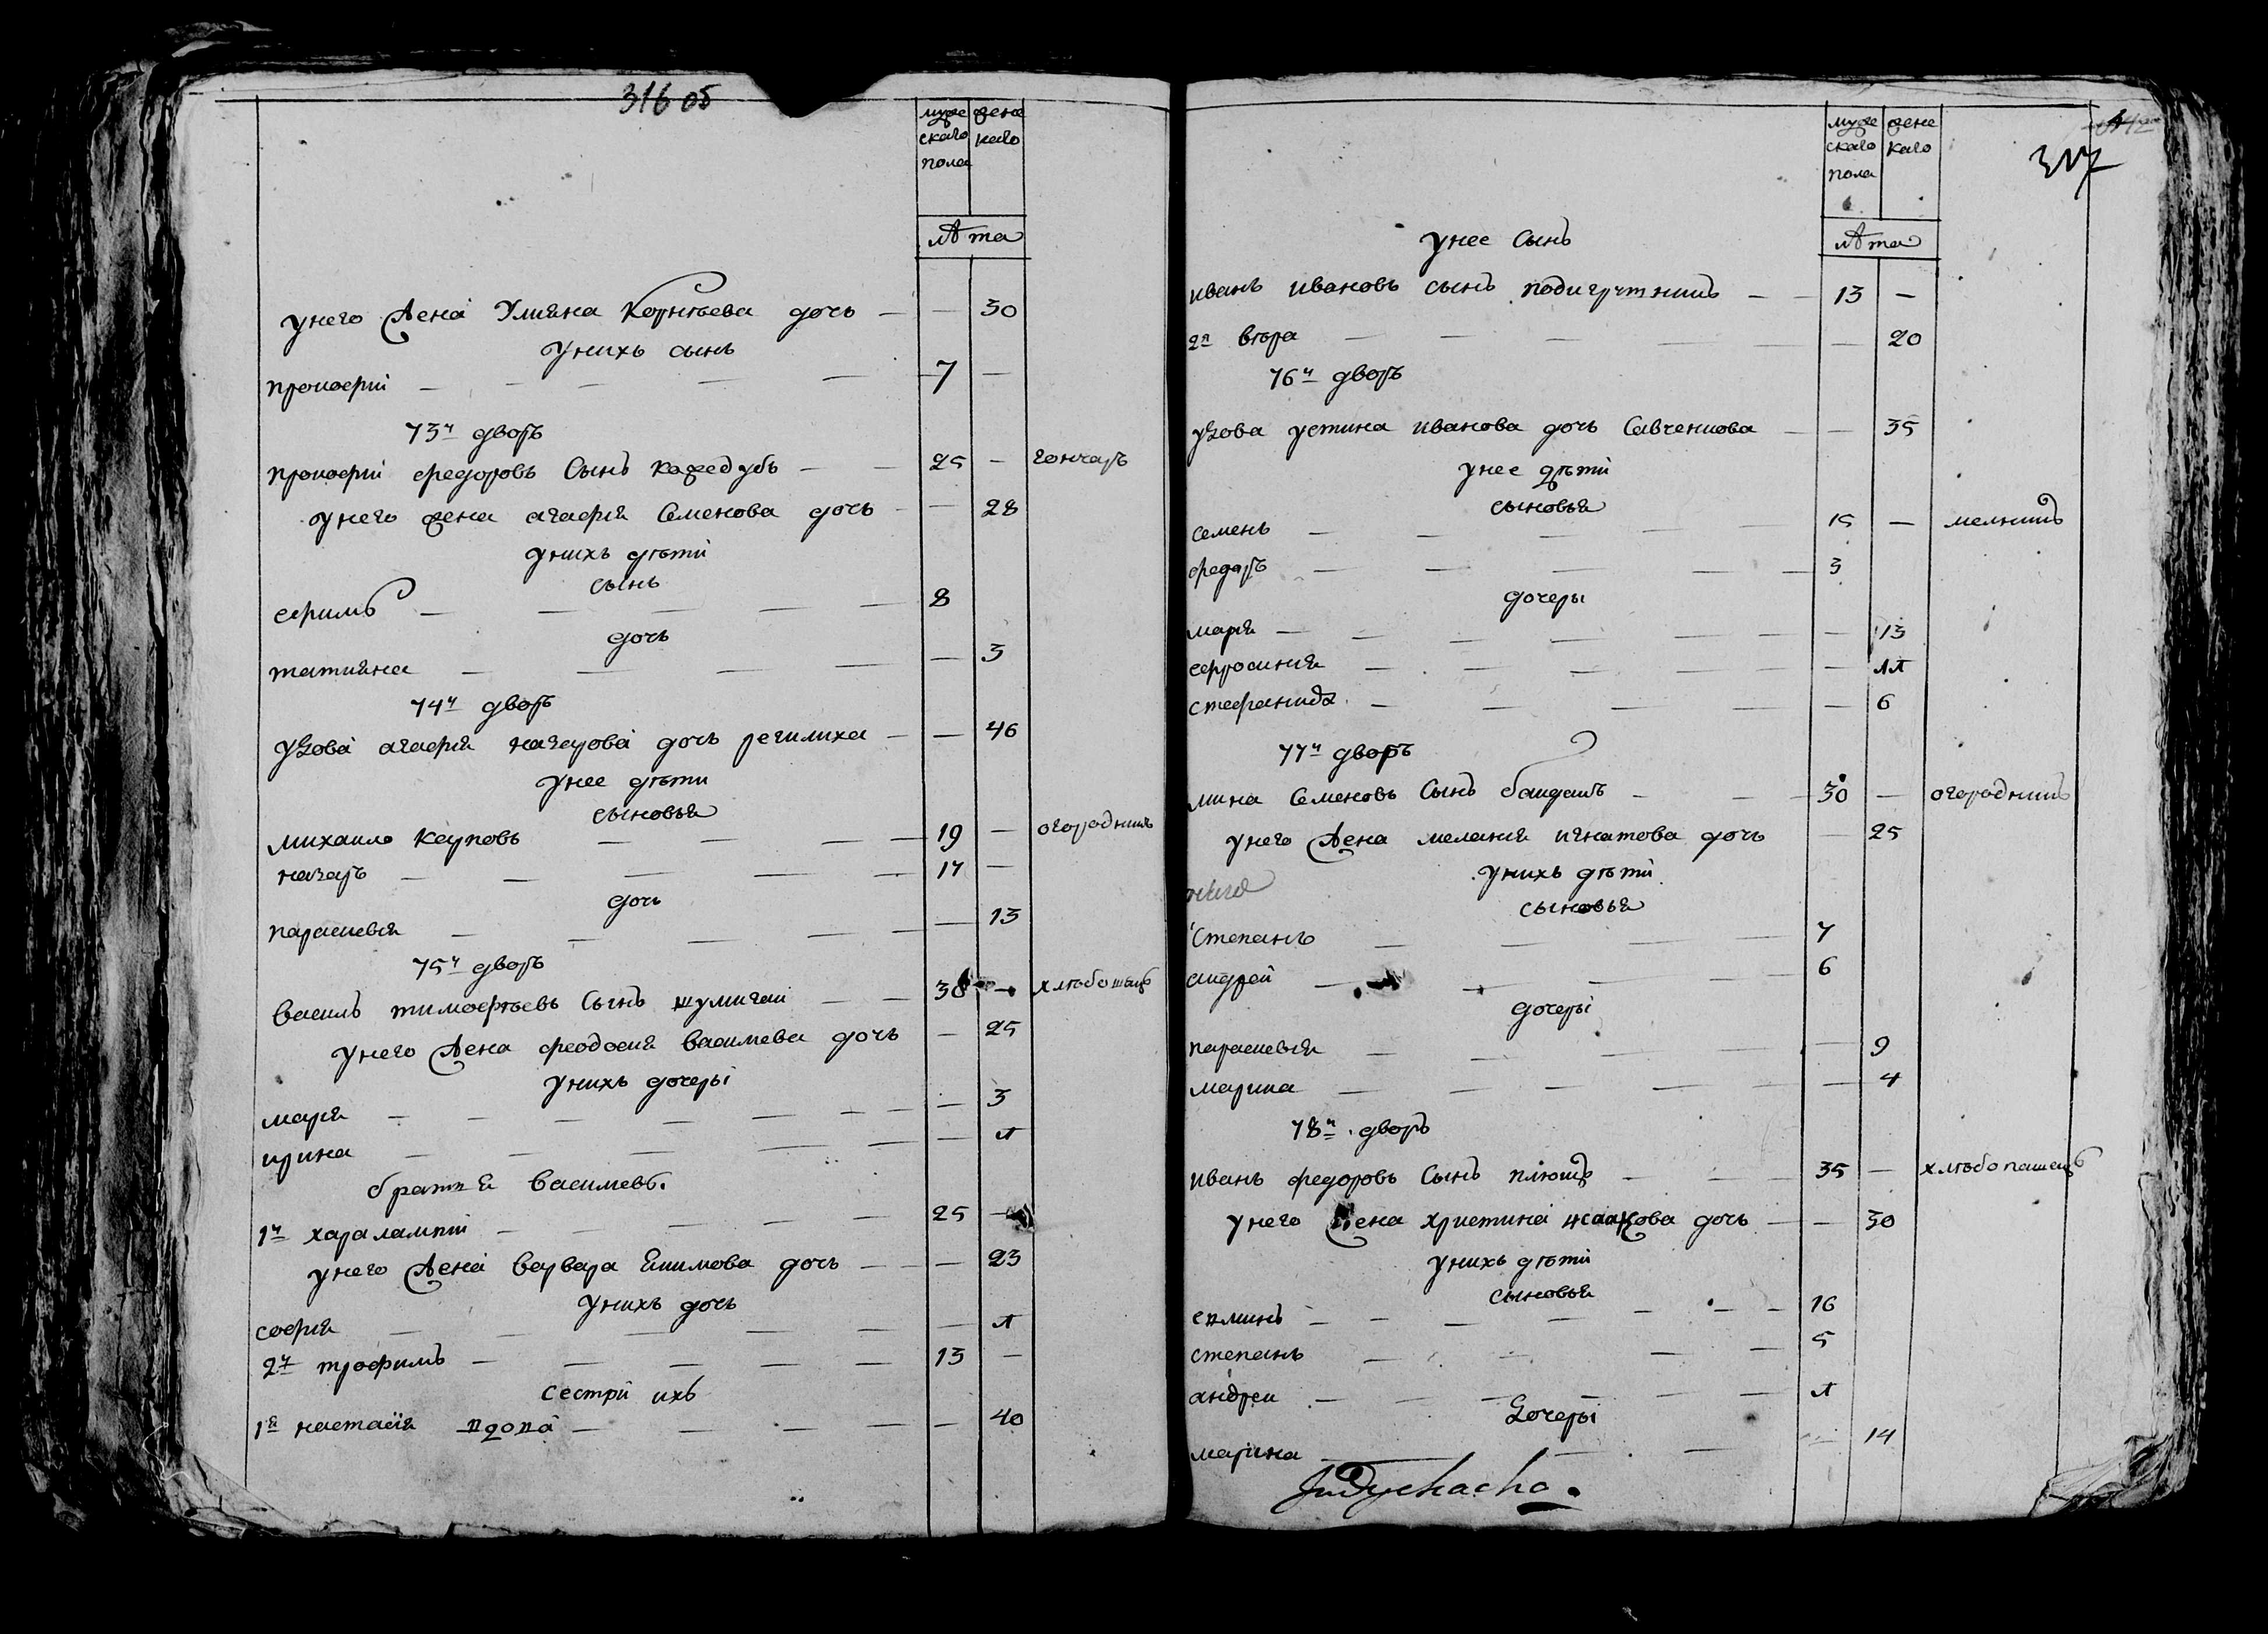 316 об
муже ското пола
жене кого
лѣта
унего жена Улияна Корнѣева дочь — — 30
унихъ сынъ
прокофий — 7 —
73й дворъ
прокофий федоровъ Сынъ кажедубъ — 25 — гончаръ
унего жена агафия Семенова дочь — 28
унихъ дѣти
сынъ
ефимъ — 8
дочь
татияна — — 3
74й дворъ
удова агафия назарова дочь — 46
унее дѣти
сыновья
михаило карповъ — 19 — огородникъ
назаръ — 17 —
дочь
параскевия — — 13
75й дворъ
василь тимофѣевъ Сынъ шумигаи — 38 — хлѣбопашецъ
унего жена феодосия василиева дочь — 25
унихъ дочери
мария — — 3
ирина — — 1
братья василиевы.
1й харалампий — 25 —
унего жена варвара Екимова дочь — — 23
унихъ дочь
софия — — 1
2й трофимъ — 13 —
сестри ихъ
1я настасия вдова — — 40
317
муже ского пола
жене кого
лѣта
унее Сынъ
иванъ ивановъ сынъ — 13 —
2я вѣра — — 20
76й дворъ
удова устина иванова дочь Савченкова — — 35
унее дѣти
сыновья
семенъ — 15 — мелникъ
федоръ — 3
дочеры
мария — — 13
ефросиния — — 11
стефанида — — 6
77й дворъ
мина Семеновъ Сынъ баидакъ — 30 — огородникъ
унего жена мелания игнатова дочь — 25
унихъ дѣти
сыновья
Степанъ — 7
андрей — 6
дочери
параскевия — — 9
марина — — 4
78й дворъ
иванъ федоровъ Сынъ плющъ — 35 — хлѣбопашецъ
унего жена христина исаакова дочь — — 30
унихъ дѣти
сыновья
— 16
степанъ — 5
андреи — 1
Дочери
марина — — 14